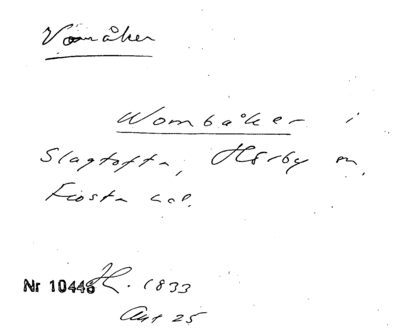 Vomåker
Wombåker i
Slagtofta, Hörby sn,
Frosta hd.
Nr 10446 H. 1833
Aug 25